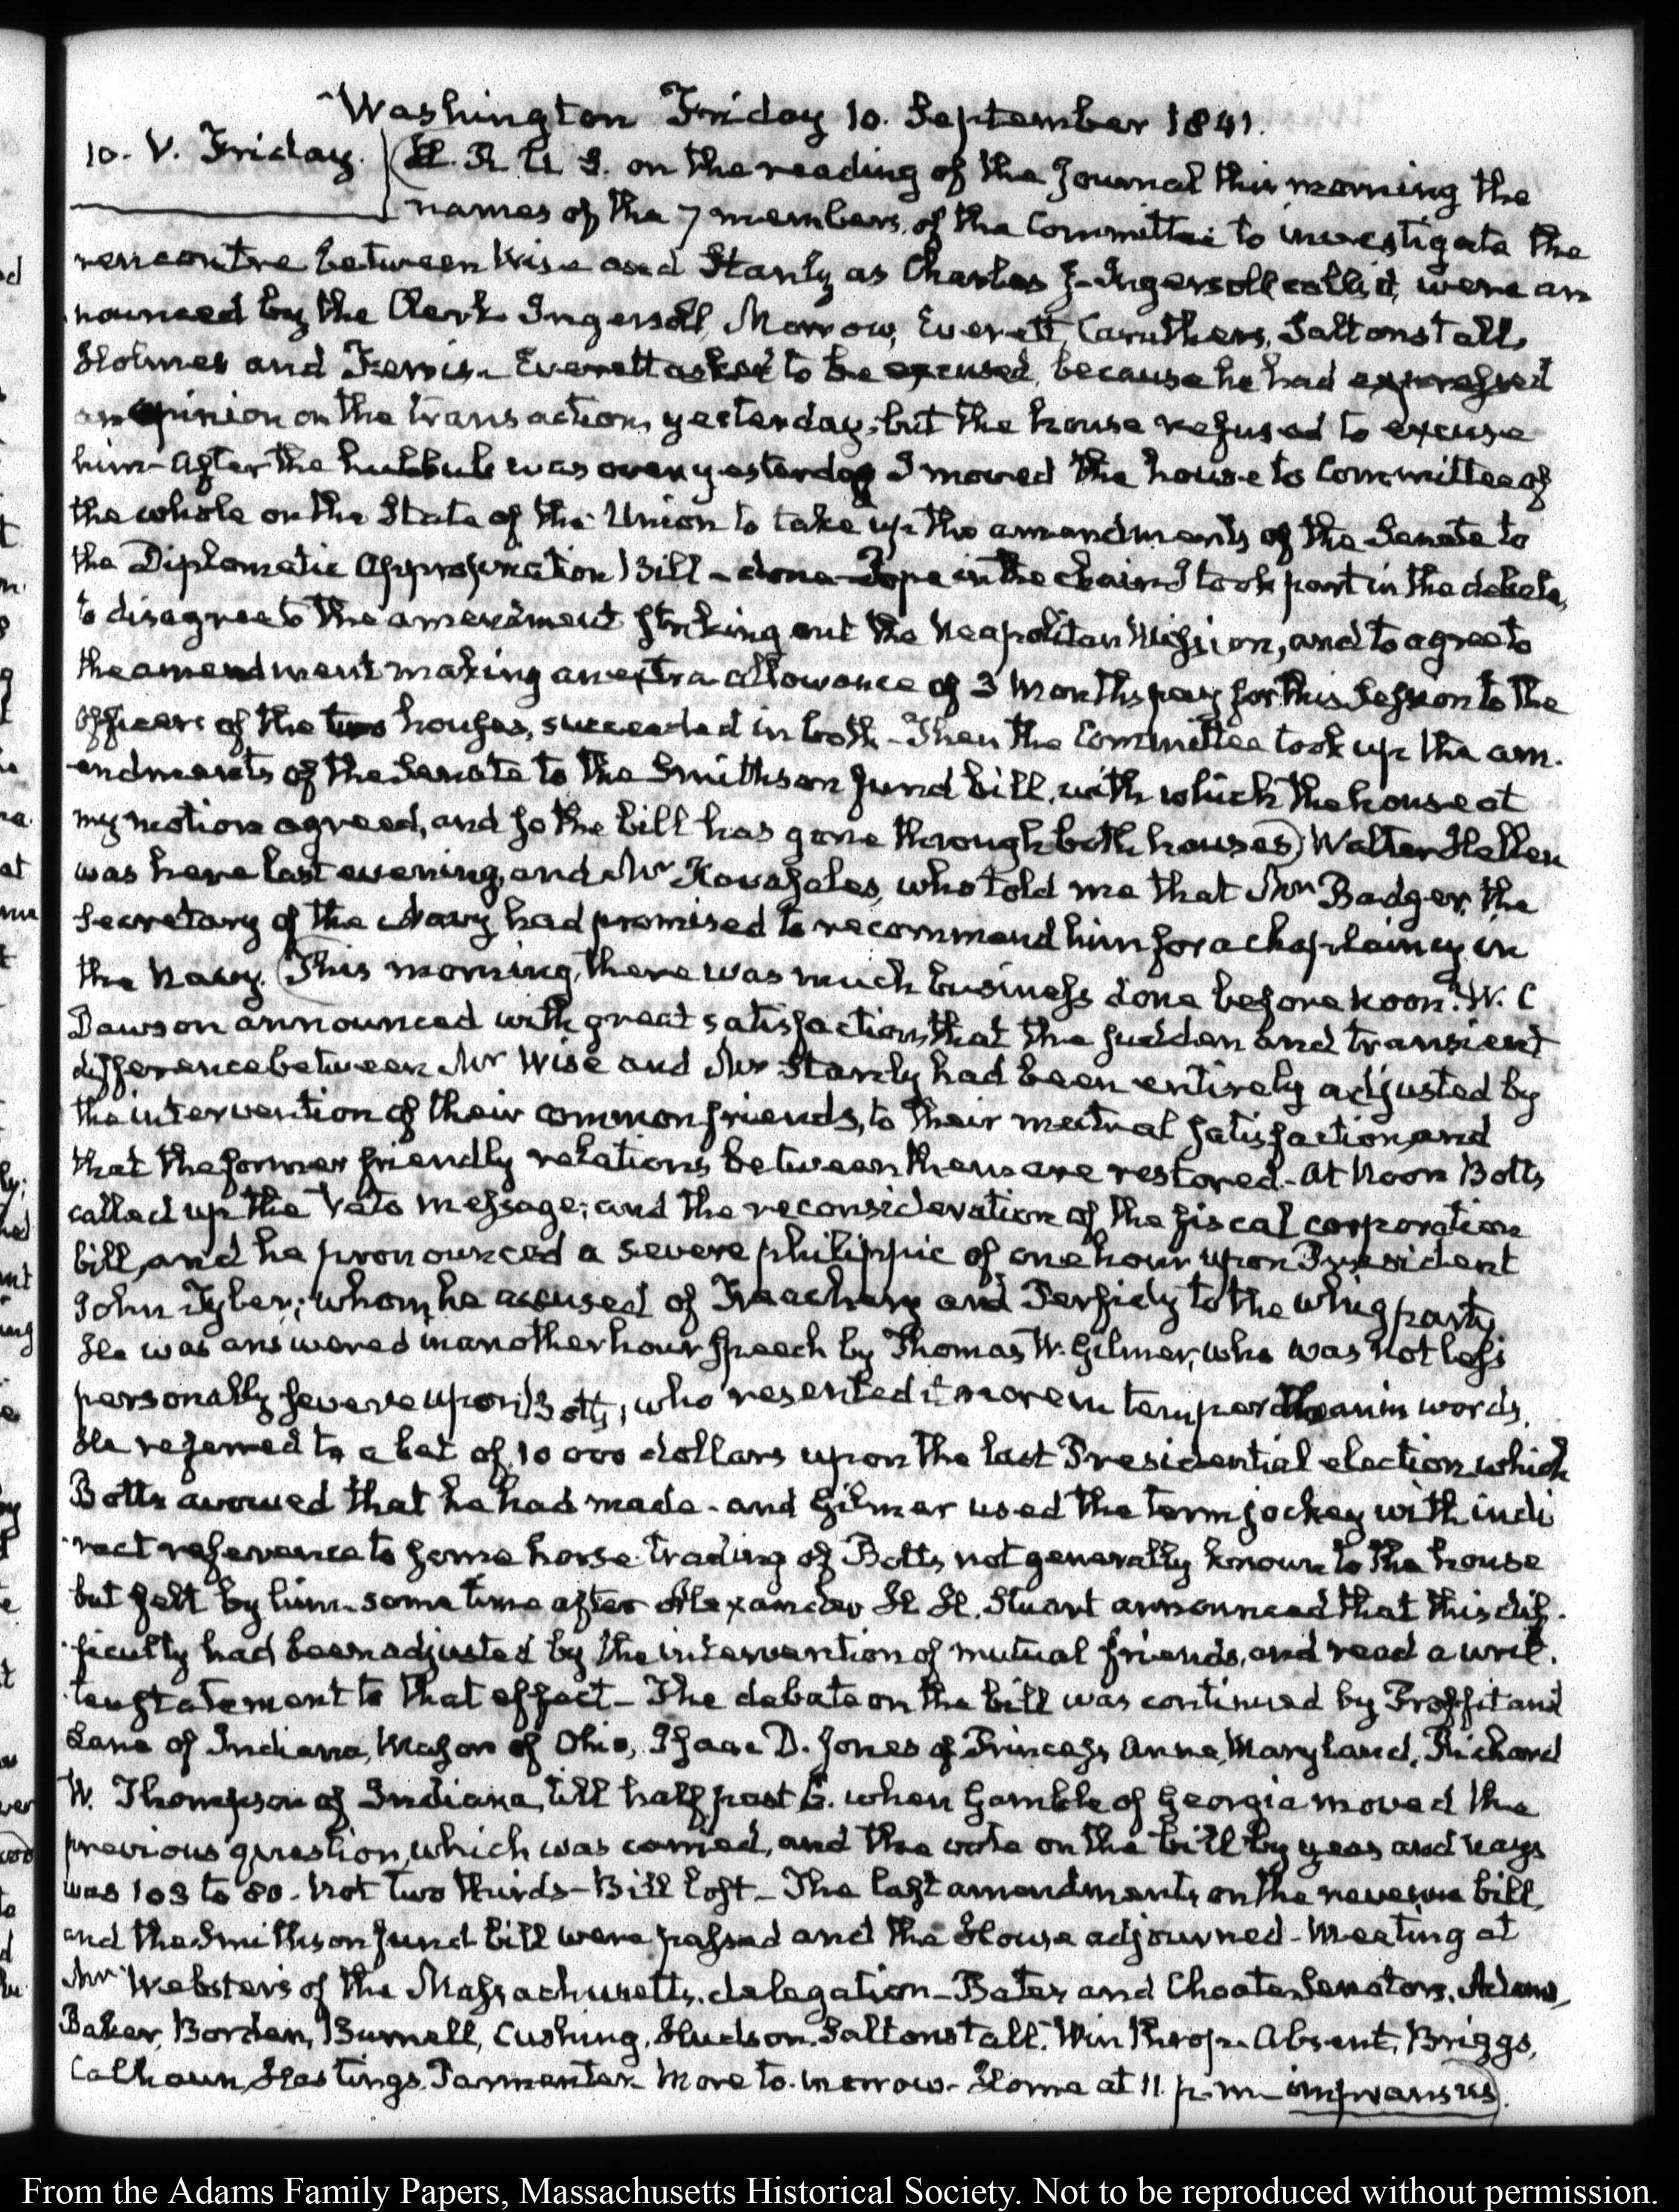 Washington Friday 10. September 1841.
10. V. Friday. (H. R. U S. on the reading of the Journal this morning the
names of the 7 members, of the Committee to investigate the
rencontre between Wise and Stanly as Charles J. Ingersoll called it, were an
nounced by the Clerk Ingersoll, Morrow, Everett, Caruthers, Saltonstall,
Holmes and Ferris. Everett asked to be excused, because he had expressed
an opinion on the transaction, yesterday; but the house refused to excuse
him– After the hubbub was over yesterday I moved the house to Committee of
the whole on the State of the Union to take up the amendments of the Senate to
the Diplomatic Appropriation Bill – done – Pope in the chair. I took part in the debate,
to disagree to the amendment striking out the Neapolitan Mission, and to agree to
the amendment making an extra allowance of 3 months pay for this Session to the
officers of the two houses, succeeded in both – Then the Committee took up the am-
endments of the Senate to the Smithson fund bill, with which the house at
my motion agreed, and so the bill has gone through both houses) Walter Hellen
was here last evening, and Mr , who told me that Mr Badger, the
Secretary of the Navy had promised to recommend him for a chaplaincy in
the Navy. (This morning, there was much business done before noon. W. C
Dawson announced with great satisfaction, that the sudden and transient
difference between Mr Wise and Mr Stanly had been entirely adjusted by
the intervention of their common friends, to their mutual satisfaction, and
that the former friendly relations between them are restored – At Noon Botts
called up the Veto message; and the reconsideration of the fiscal corporation
bill, and he pronounced a severe philippic of one hour upon President
John Tyler; whom, he accused of Treachery and Perfidy to the whig party
He was answered in another hour speech by Thomas W. Gilmer, who was not less
personally severe upon Botts, who resented it more in temper than in words.
He referred to a bet of 10 000 dollars upon the last Presidential election, which
Botts avowed that he had made – and Gilmer used the term jockey with indi
rect reference to some horse-trading of Botts, not generally known to the house
but felt by him. some time after Alexander H. H. Stuart announced that this dif-
ficulty had been adjusted by the intervention of mutual friends, and read a writ-
ten statement to that effect – The debate on the bill was continued by Proffit and
Lane of Indiana, Mason of Ohio, Isaac D. Jones of Princess Anne, Maryland, Richard
W. Thompson of Indiana, till half past 6. when Gamble of Georgia moved the
previous question, which was carried, and the vote on the bill by yeas and nays
was 103 to 80. Not two thirds – Bill lost – The last amendments on the revenue bill,
and the Smithson fund bill were passed and the House adjourned – Meeting at
Mr Webster's of the Massachusetts, delegation – Bates and Choate Senators, Adams,
Baker, Borden, Burnell, Cushing, Hudson, Saltonstall, Winthrop. Absent, Briggs,
Calhoun, Hastings, Parmenter. More to-morrow – Home at 11. p. m – impransus).
From the Adams Family Papers, Massachusetts Historical Society. Not to be reproduced without permission.